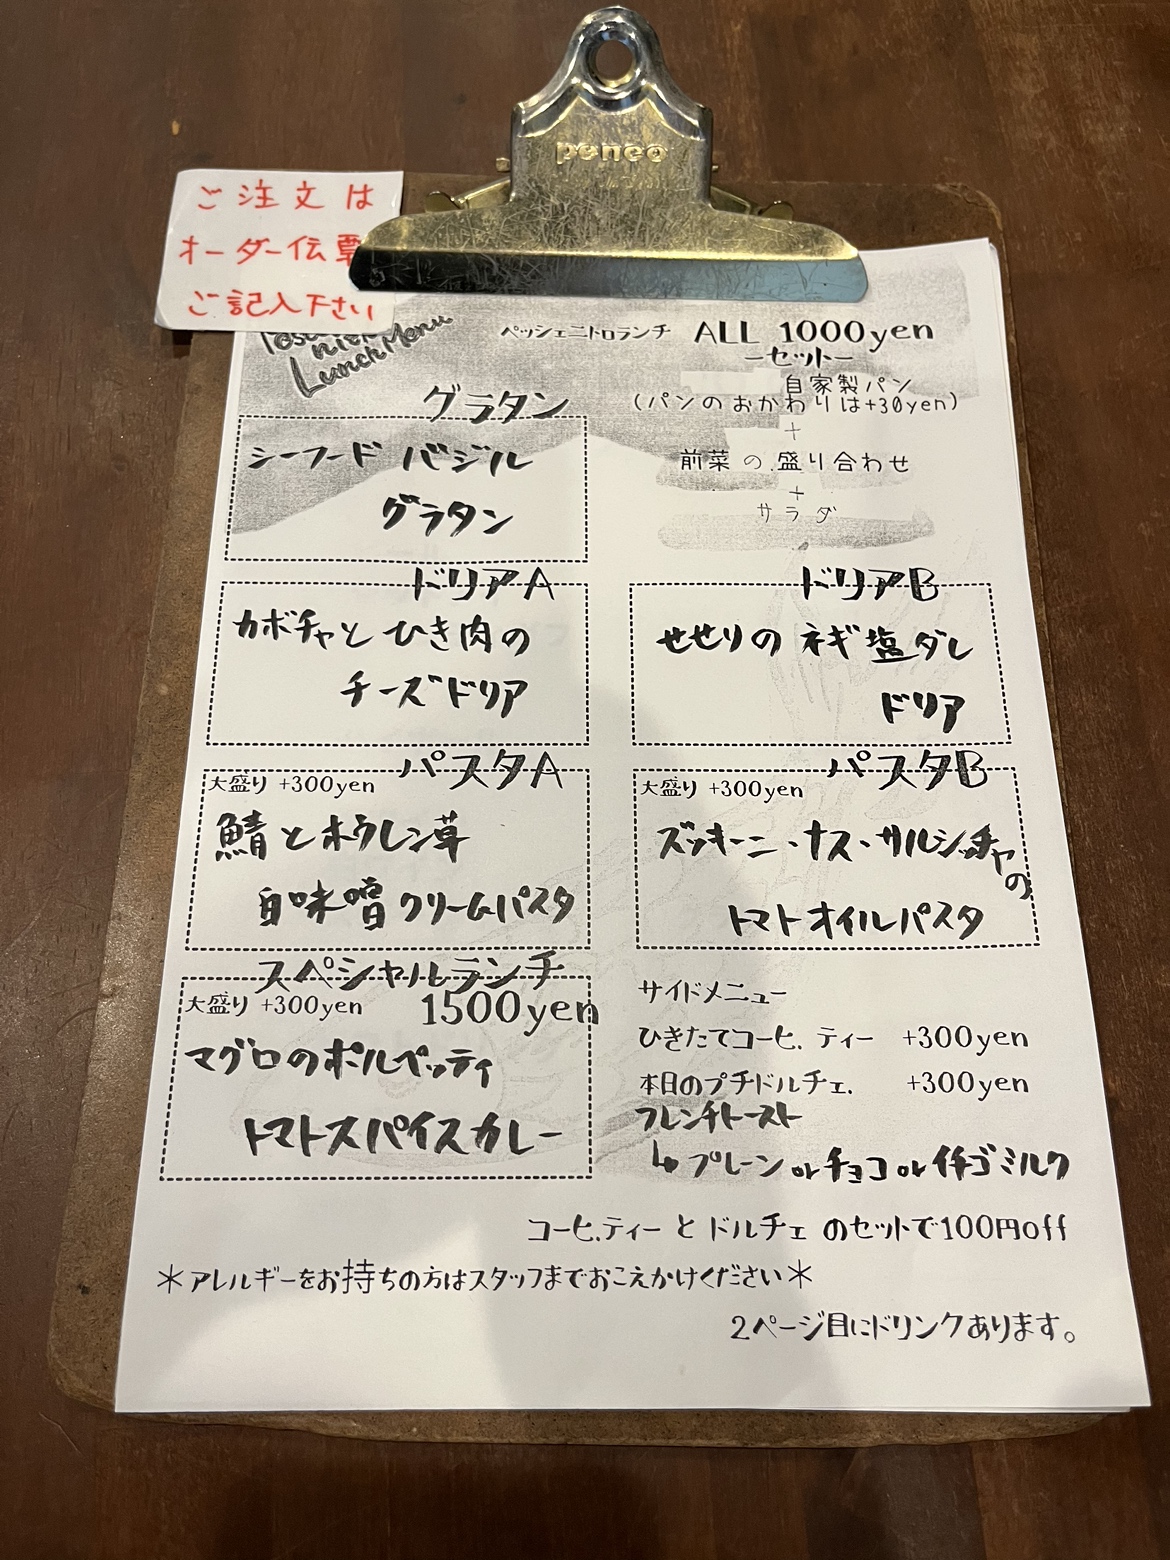 penco
ご注文は
オーダー伝票
ご記入下さい
Lunch Menu
ペッシェニトロランチ ALL 1000yen
ーセットー
自家製パン
(パンのおかわりは+30yen)
+
前菜の盛り合わせ
+
サラダ
グラタン
シーフードバジル
グラタン
ドリアA
カボチャとひき肉の
チーズドリア
ドリアB
せせりのネギ塩ダレ
ドリア
パスタA
大盛り +300yen
鯖とホウレン草
白味噌クリームパスタ
パスタB
大盛り +300yen
ズッキーニ・ナス・サルシッチャの
トマトオイルパスタ
スペシャルランチ
大盛り +300yen 1500yen
マグロのポルペッティ
トマトスパイスカレー
サイドメニュー
ひきたてコーヒ. ティー +300yen
本日のプチドルチェ. +300yen
フレンチトースト
↳ プレーン or チョコ or イチゴミルク
コーヒ.ティー と ドルチェ のセットで100円off
*アレルギーをお持ちの方はスタッフまでおこえかけください*
2ページ目にドリンクあります。